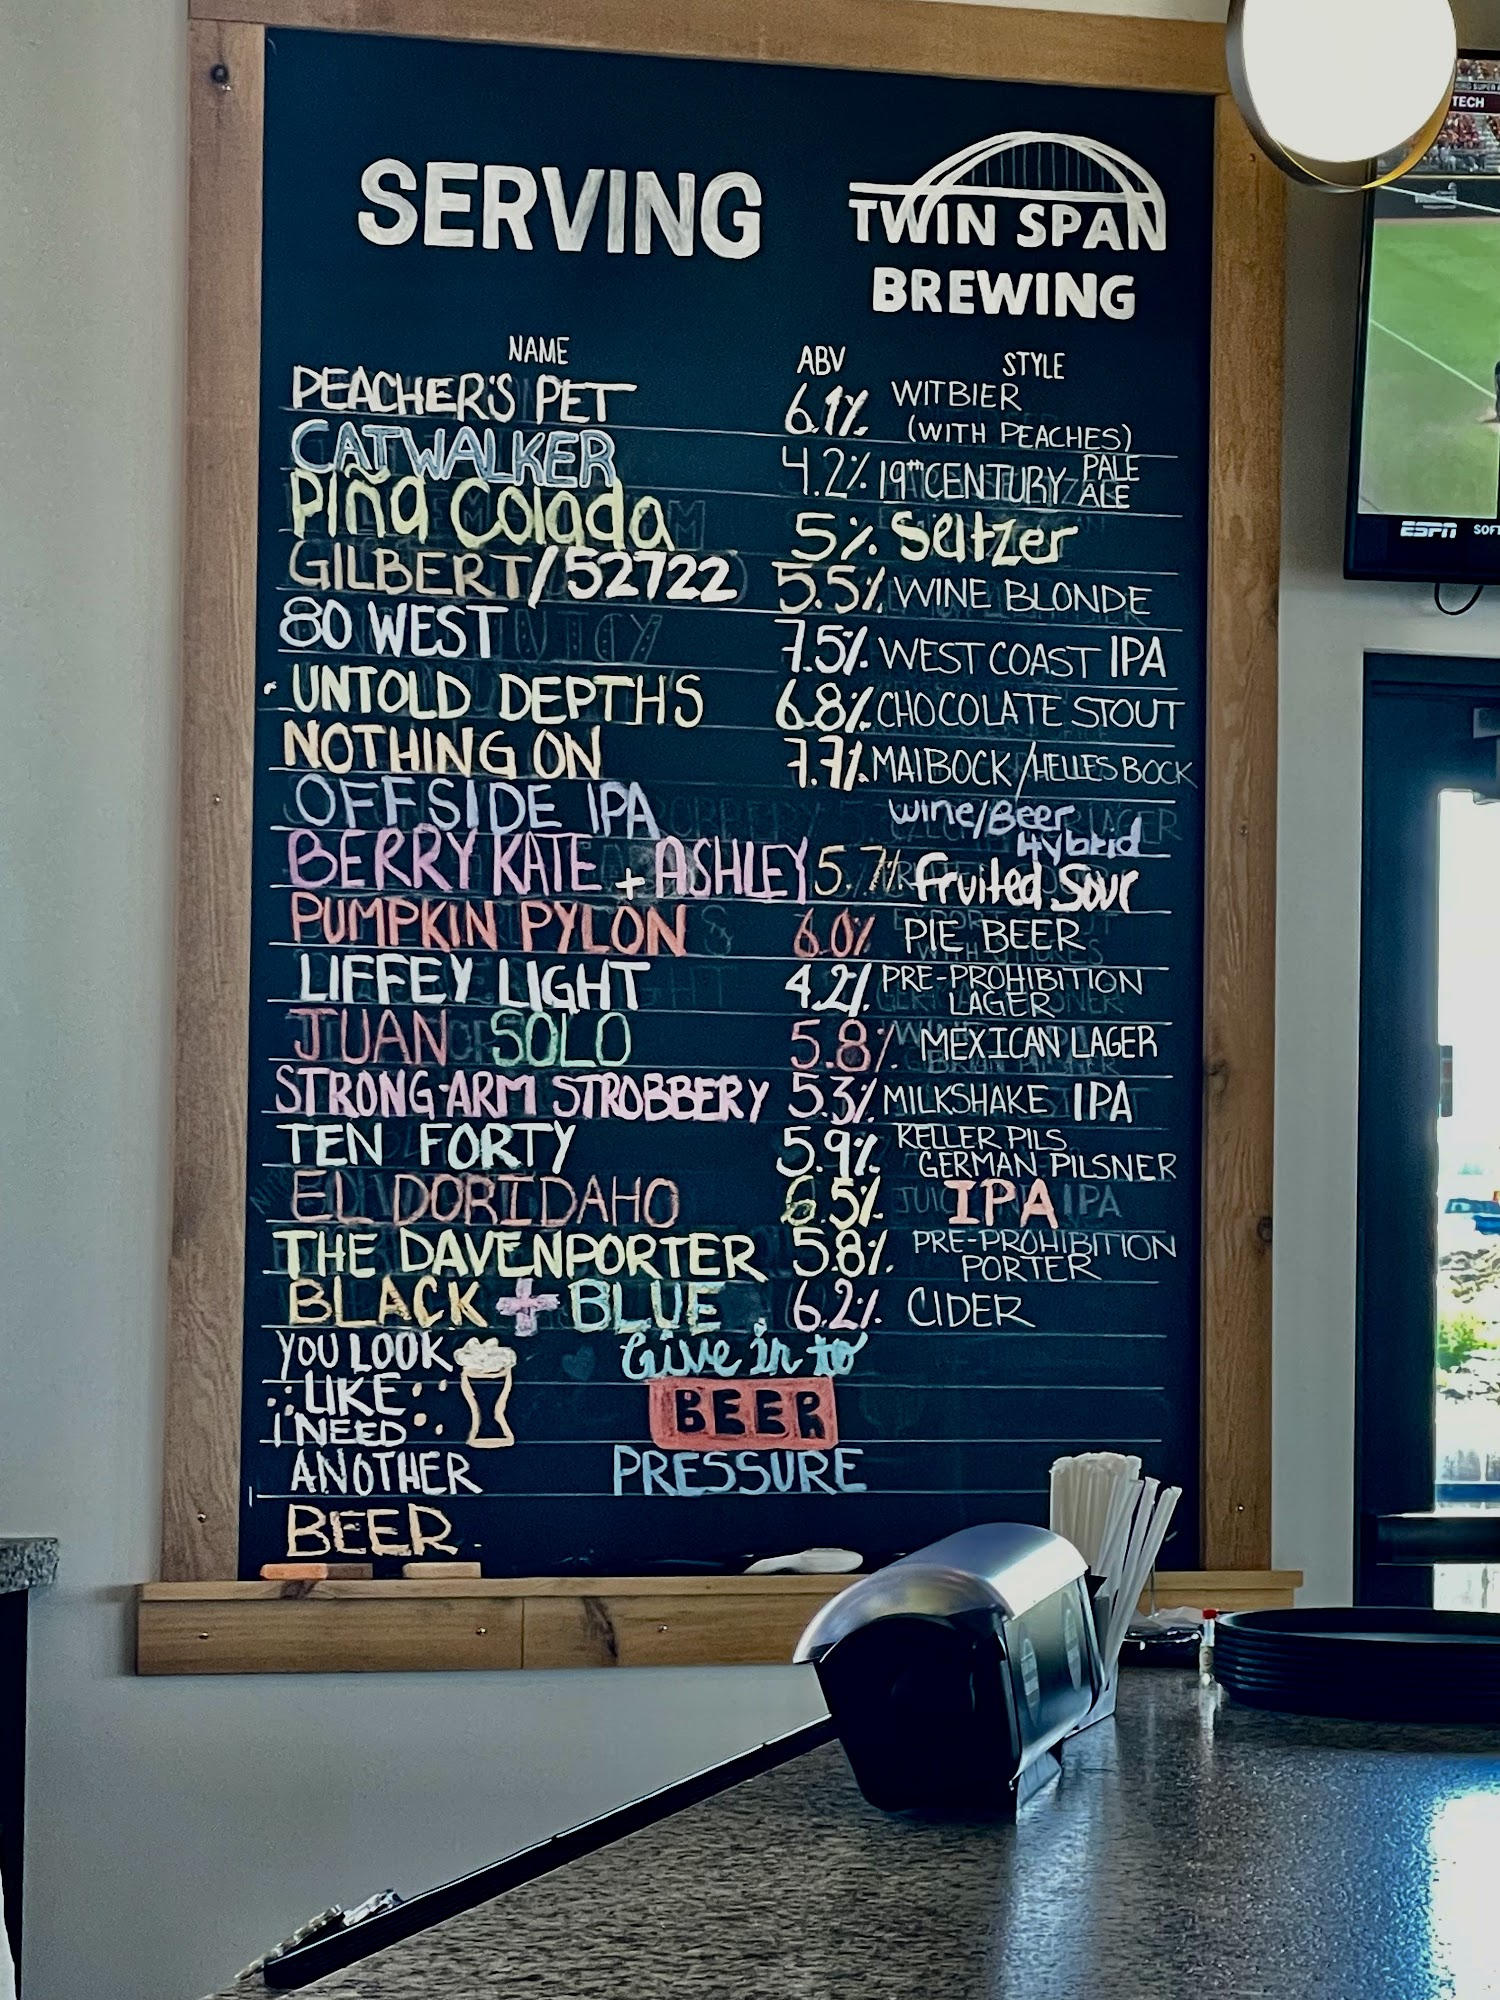 SERVING
TWIN SPAN
BREWING
NAME ABV STYLE
PEACHER'S PET 6.1% WITBIER
(WITH PEACHES)
CATWALKER 4.2% 19TH CENTURY PALE
ALE
Piña Colada 5% Seltzer
GILBERT/52722 5.5% WINE BLONDE
80 WEST 7.5% WEST COAST IPA
UNTOLD DEPTHS 6.8% CHOCOLATE STOUT
NOTHING ON 7.7% MAIBOCK/HELLES BOCK
OFFSIDE IPA Wine/Beer
Hybrid
BERRY KATE + ASHLEY 5.7% Fruited Sour
PUMPKIN PYLON 6.0% PIE BEER
LIFFEY LIGHT 4.2% PRE-PROHIBITION
LAGER
JUAN SOLO 5.8% MEXICAN LAGER
STRONG-ARM STROBBERY 5.3% MILKSHAKE IPA
TEN FORTY 5.9% KELLER PILS
GERMAN PILSNER
EL DORIDAHO 6.5% IPA
THE DAVENPORTER 5.8% PRE-PROHIBITION
PORTER
BLACK + BLUE 6.2% CIDER
YOU LOOK
LIKE
I NEED
ANOTHER
BEER
Give in to
BEER
PRESSURE
TECH
ESPN